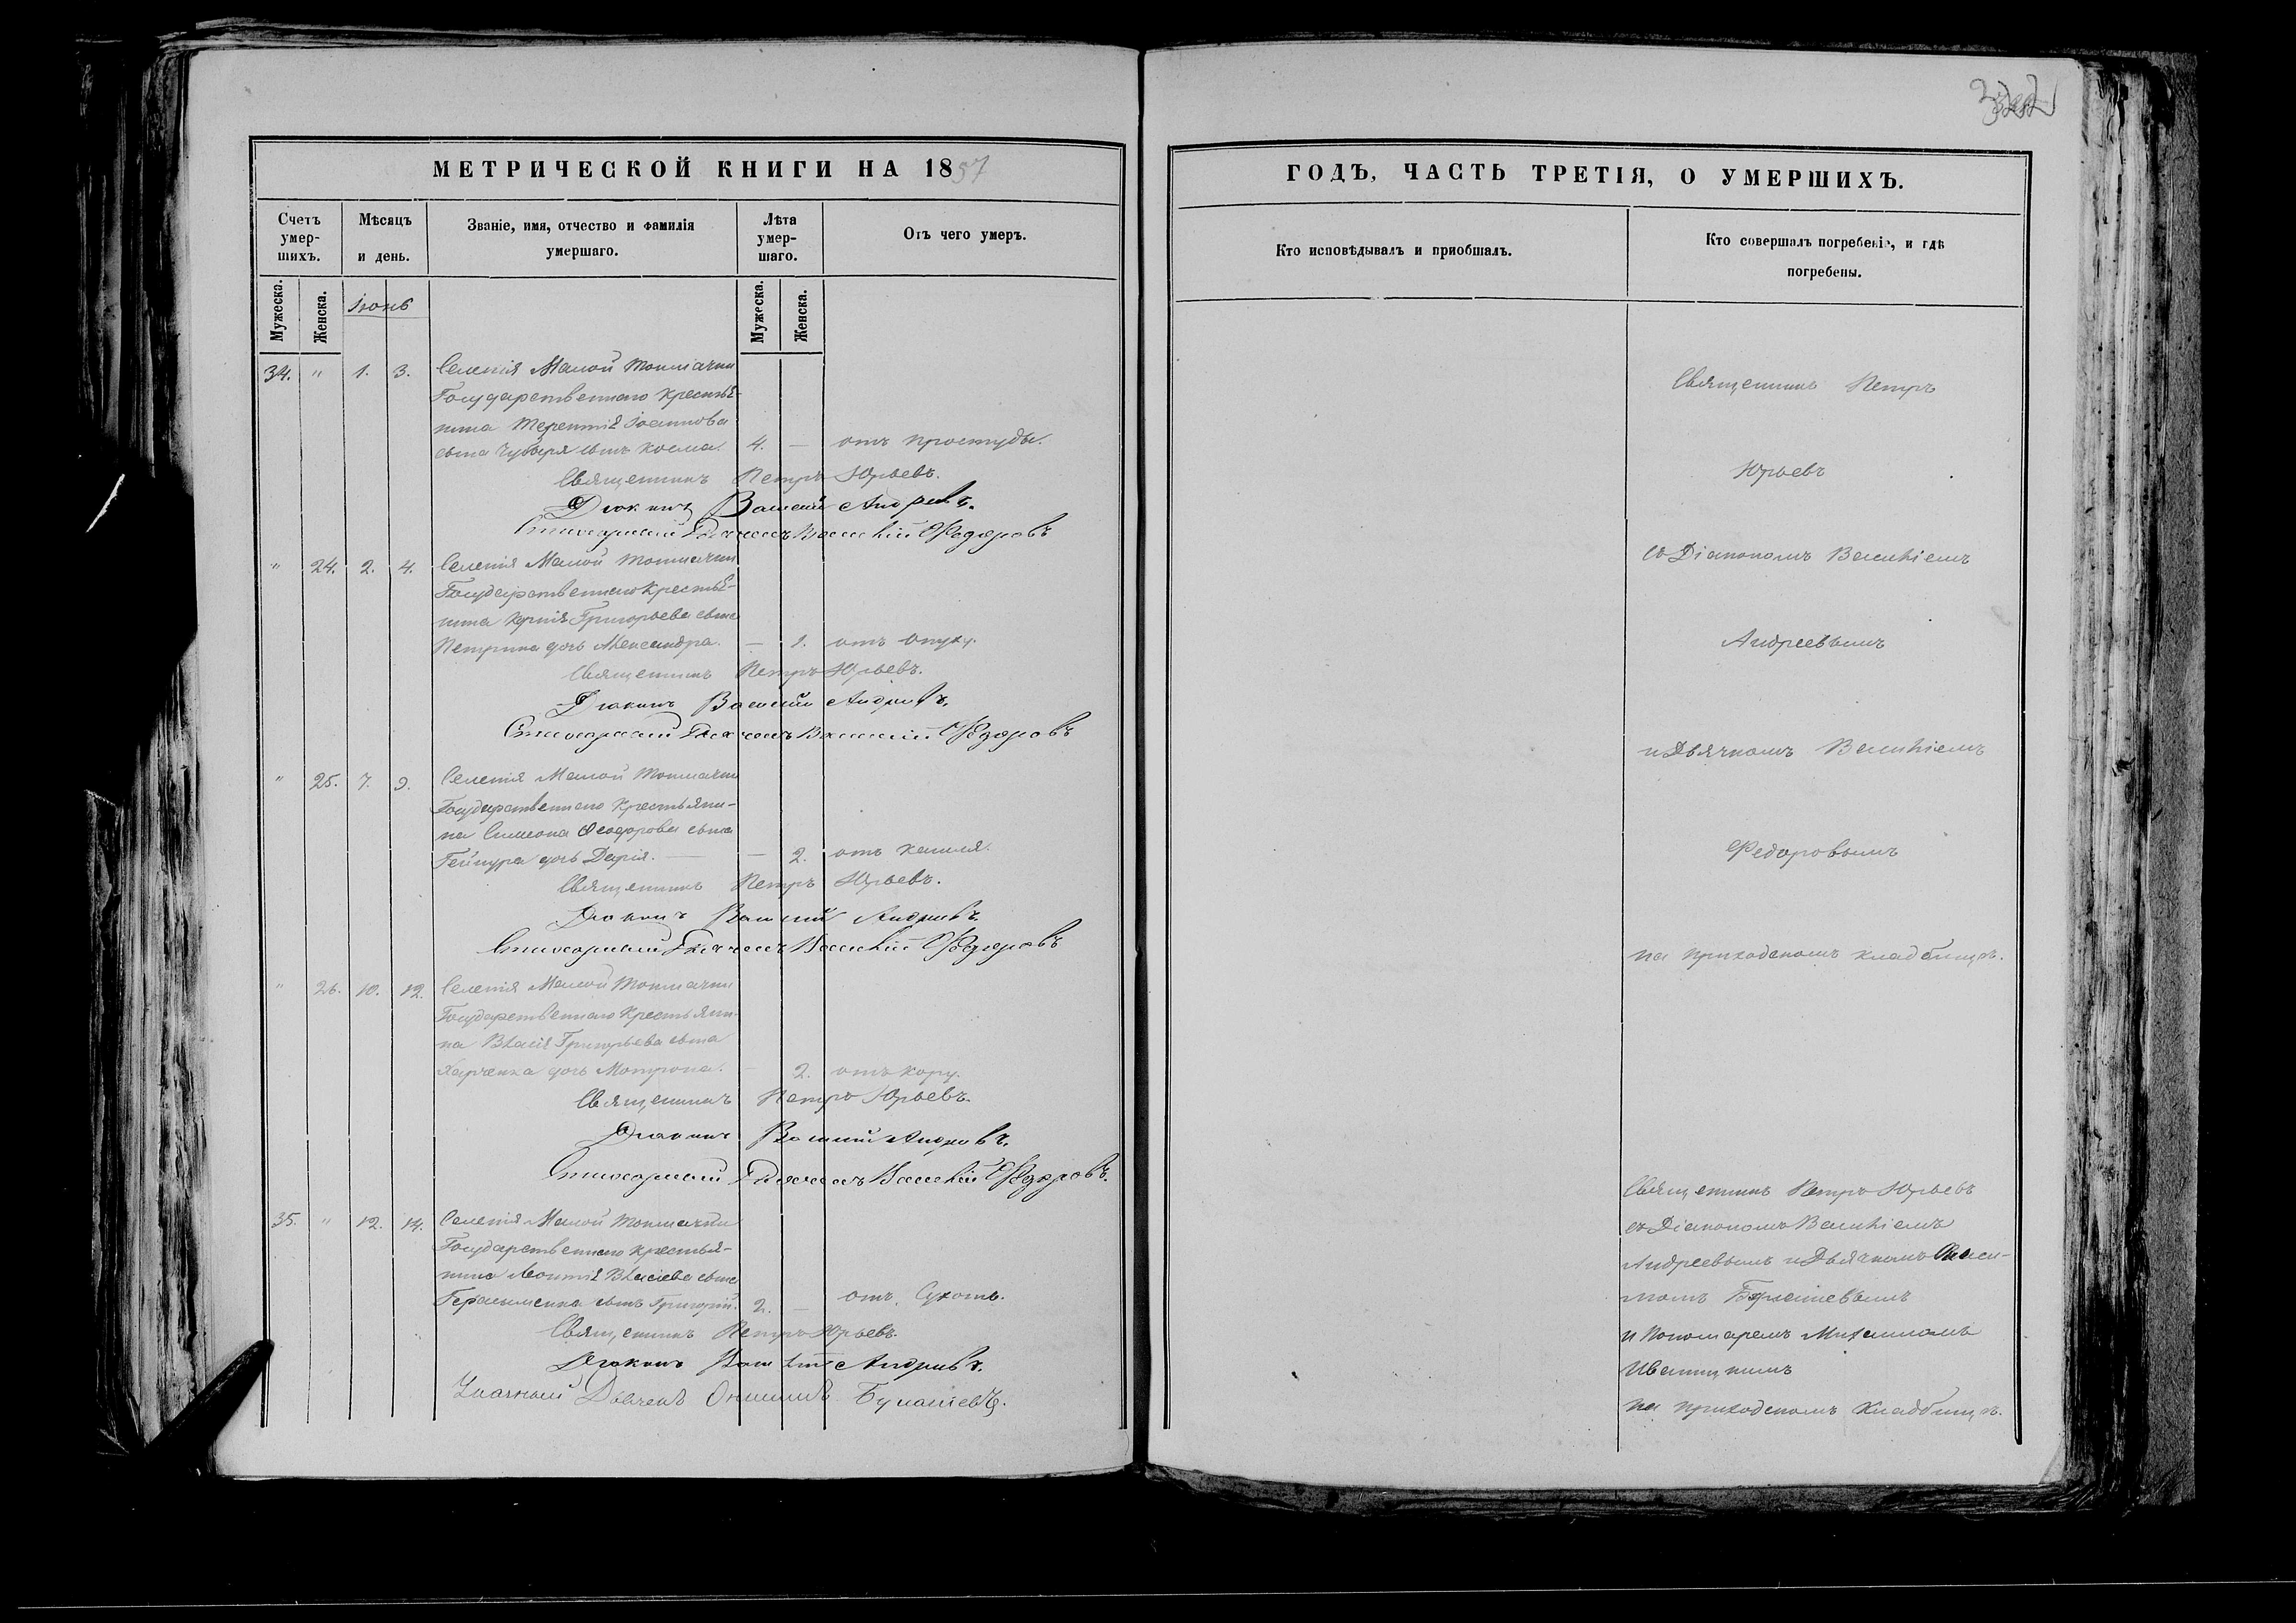 МЕТРИЧЕСКОЙ КНИГИ НА 1857
Счетъ умер-шихъ.
Мѣсяцъ и день.
Званіе, имя, отчество и фамилія умершаго.
Лѣта умер-шаго.
Отъ чего умеръ.
Мужеска.
Женска.
Іюнь
Мужеска.
Женска.
34. " 1. 3. Селенія Малой Токмачки
Государственнаго крестья-
нина Терентія Іоаннова
сына Чубаря сынъ Косма. 4. — отъ простуды.
Священникъ Петръ Юрьевъ.
Діаконъ Василій Андреевъ.
Стихарный Дьячекъ Василій Федоровъ
" 24. 2. 4. Селенія Малой Токмачки
Государственнаго крестья-
нина Григорьева сына
Петрика дочь Александра. — 1. отъ
Священникъ Петръ Юрьевъ.
Діаконъ Василій Андреевъ.
Стихарный Дьячекъ Василій Федоровъ
" 25. 7. 9. Селенія Малой Токмачки
Государственнаго крестьяни-
на Симеона Ѳеодорова сына
дочь Дарія. — — 2. отъ кашля.
Священникъ Петръ Юрьевъ.
Діаконъ Василій Андреевъ.
Стихарный Дьячекъ Василій Федоровъ
" 26. 10. 12. Селенія Малой Токмачки
Государственнаго крестьяни-
на Власія Григорьева сына
Харченка дочь Мотрона. — 2. отъ кору.
Священникъ Петръ Юрьевъ.
Діаконъ Василій Андреевъ.
Стихарный Дьячекъ Василій Федоровъ.
35. " 12. 14. Селенія Малой Токмачки
Государственнаго крестья-
нина Леонтія Власіева сына
Герасименка сынъ Григорій. 2. — отъ Сухотъ.
Священникъ Петръ Юрьевъ.
Діаконъ Василій Андреевъ.
Дьячекъ Онисимъ
ГОДЪ, ЧАСТЬ ТРЕТІЯ, О УМЕРШИХЪ.
Кто исповѣдывалъ и пріобщалъ.
Кто совершалъ погребеніе, и гдѣ
погребены.
Священникъ Петръ
Юрьевъ
съ Діакономъ Василіемъ
Андреевымъ
и Дьячкомъ Василіемъ
Федоровымъ
на приходскомъ кладбищѣ.
Священникъ Петръ Юрьевъ
съ Діакономъ Василіемъ
Андреевымъ и Дьячкомъ Ониси-
момъ
и Пономаремъ Михаиломъ
Иваницкимъ
на приходскомъ кладбищѣ.